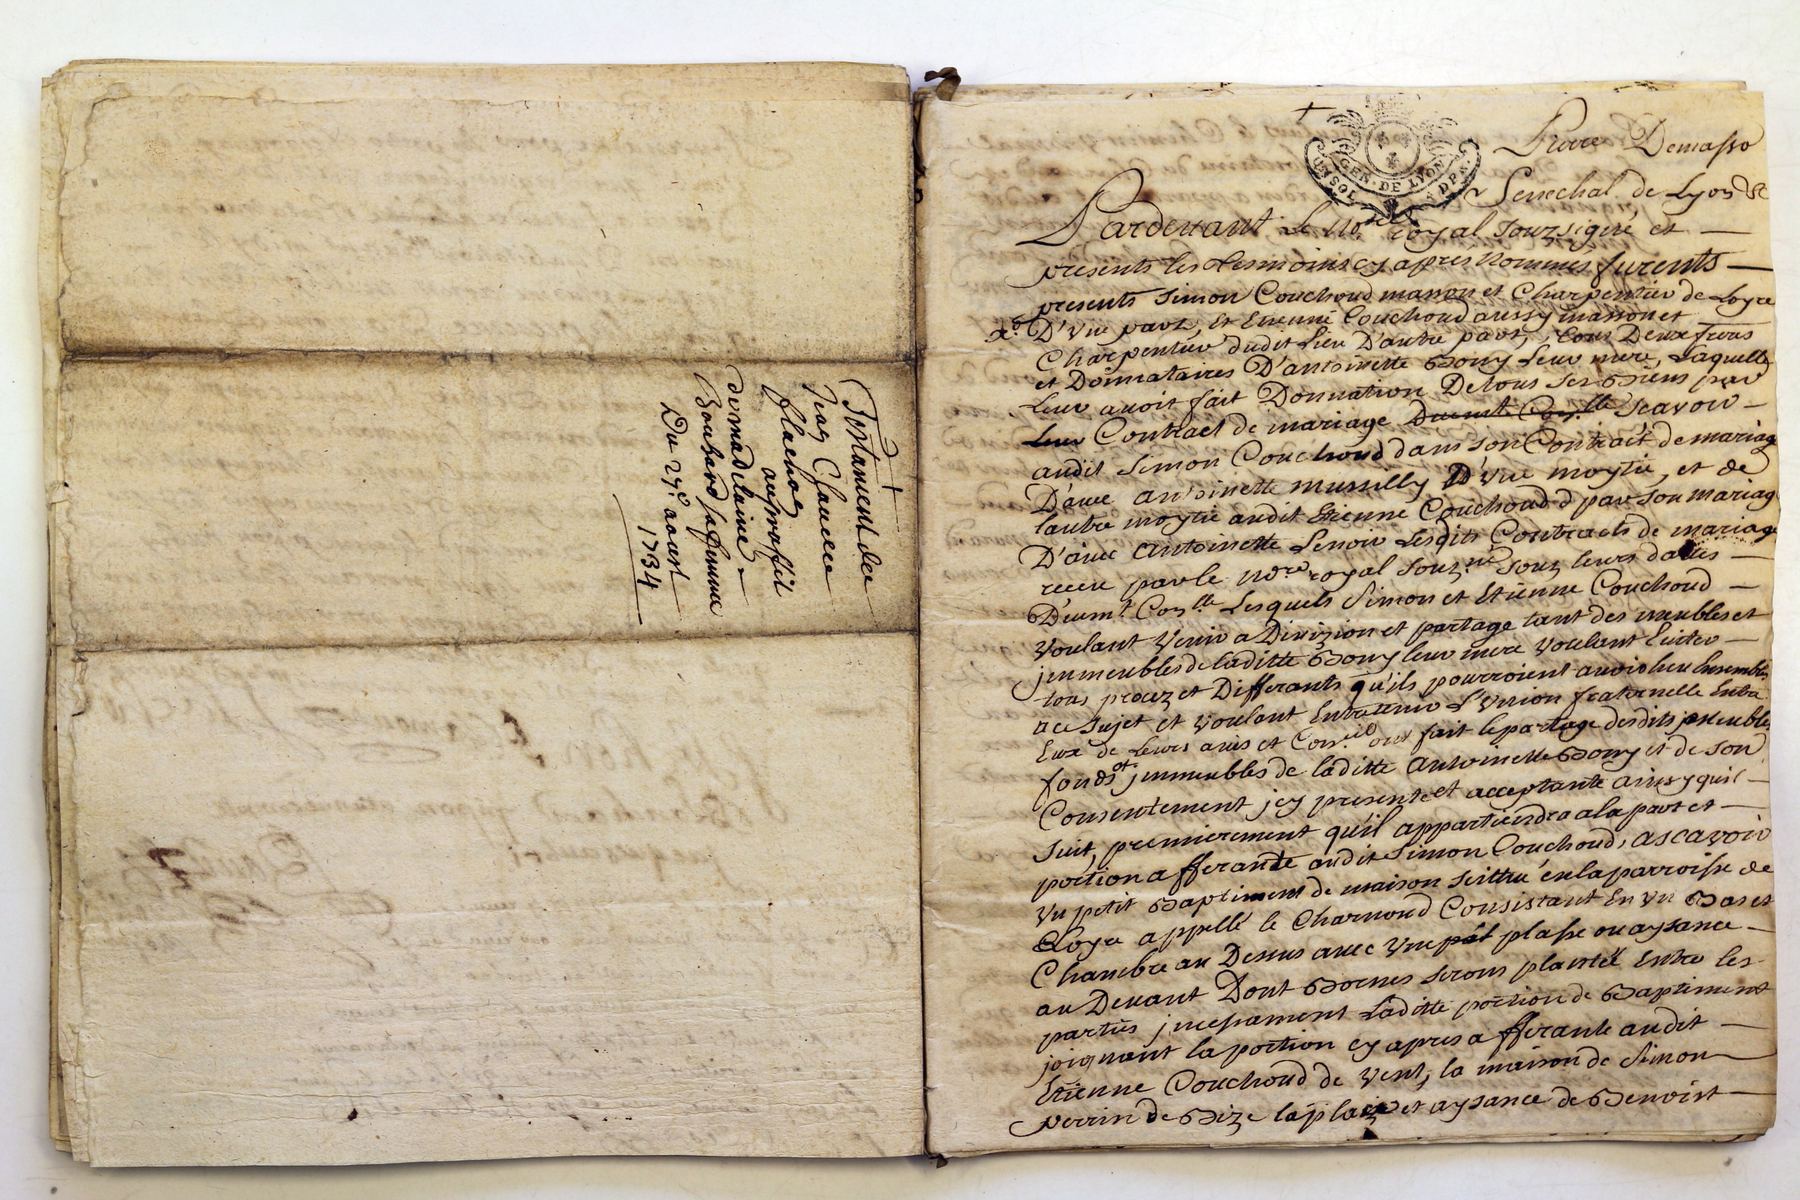 Testament de
Jean Claude
flachoz
au proffit
de madelaine
Bouchard sa femme
Du 27e. aoust
1734
GEN. DE LYON
Pierre Demasso
Senechal de Lyon &c
Pardevant Le Nore royal souzsigné et
presents les tesmoins cy apres Nommés furents
presents Simon Couchoud masson et Charpentier de Loyre
D'Vne part, Et Etienne Couchoud aussy masson et
Charpentier dudit Lieu D'autre part, tous Deux freres
et Donnataires D'antoinette Bony Leur mere, Laquelle
Leur avoit fait Donnation De tous ses Biens par
Leur Contract de mariage Scavoir
audit Simon Couchoud dans son Contract de mariage
D'avec antoinette mussilly D'Vne moytié, et de
lautre moytié audit Etienne Couchoud par son mariage
D'avec antoinette Lenoir Lesdits Contracts de mariage
receu par le Nore royal souzné souz leurs dattes
Deumt Conlle Lesquels Simon et Etienne Couchoud
Voulant Venir a Divizion et partage tant des meubles et
jmmeubles de laditte Bony leur mere Voulant Eviter
tous procez et Differants qu'ils pourroient avoir heu Ensemble
a ce sujet et Voulant Entretenir L'Vnion fraternelle Entre
Eux de Leurs avis et Conseil ont fait le partage desdits meubles
fonds et jmmeubles de laditte Antoinette Bony et de son
Consentement jcy presente et acceptante ainsy quil
suit, premierement qu'il appartiendra a la part et
portion afferante audit Simon Couchoud, ascavoir
Vn petit Baptiment de maison scittué en la parroisse de
Loyre appellé le Charnoud Consistant En Vn Bas et
Chambre au Dessus avec Vne petit plasse ou aysance
au Devant Dont Bornes serons plantée Entre les
parties jncessament Laditte portion de Baptiment
joignant la portion cy apres afferante audit
Etienne Couchoud de Vent, la maison de Simon
perrin de Bize la place et aysance de Benoist